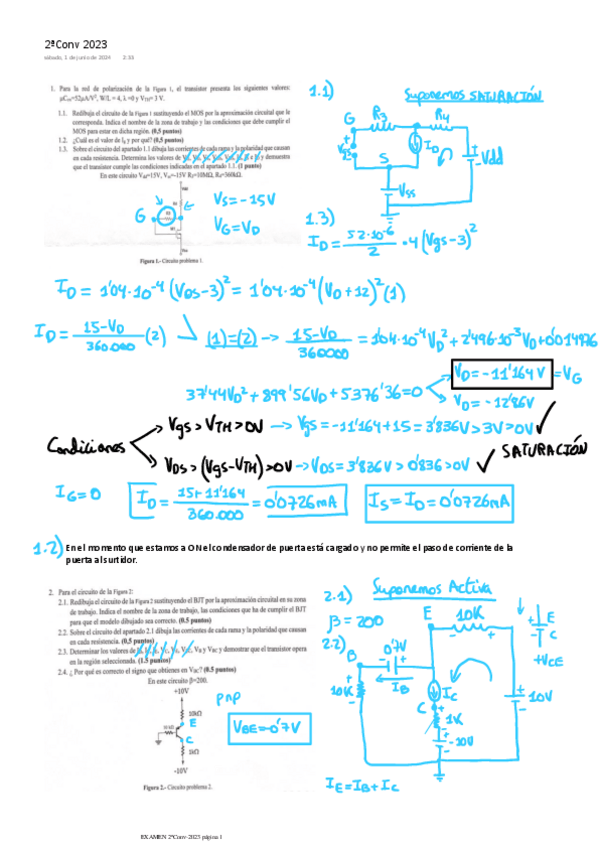 2ªConv 2023
sábado, 1 de junio de 2024 2:33
1. Para la red de polarización de la Figura 1, el transistor presenta los siguientes valores:
μCox=52μA/V², W/L = 4, λ =0 y VTH= 3 V.
1.1. Redibuja el circuito de la Figura 1 sustituyendo el MOS por la aproximación circuital que le
corresponda. Indica el nombre de la zona de trabajo y las condiciones que debe cumplir el
MOS para estar en dicha región. (0,5 puntos)
1.2. ¿Cuál es el valor de IG y por qué? (0,5 puntos)
1.3. Sobre el circuito del apartado 1.1 dibuja las corrientes de cada rama y la polaridad que causan
en cada resistencia. Determina los valores de y demuestra
que el transistor cumple las condiciones indicadas en el apartado 1.1. (1 punto)
En este circuito Vdd=15V, Vss=-15V R3=10MΩ, R4=360kΩ.
G
VS = -15V
VG = VD
Figura 1.- Circuito problema 1.
1.1) Suponemos SATURACIÓN
G R3 R4
VGS ID Vdd
S
VSS
1.3)
ID = 52·10^-6/2 · 4 (Vgs-3)²
ID = 1'04·10^-4 (VDS-3)² = 1'04·10^-4 (VD+12)² (1)
ID = 15-VD/360.000 (2) (1)=(2) → 15-VD/360000 = 1'04·10^-4 VD² + 2'496·10^-3 VD + 0'014976
37'44VD² + 899'56VD + 5376'36 = 0
VD = -11'164 V = VG
VD = -12'86V
Condiciones
Vgs > VTH > 0V → Vgs = -11'164+15 = 3'836V > 3V > 0V ✓
VDS > (Vgs-VTH) > 0V → VDS = 3'836V > 0'836 > 0V ✓ SATURACIÓN
IG = 0 ID = 15+11'164/360.000 = 0'0726mA IS = ID = 0'0726mA
1.2) En el momento que estamos a ON el condensador de puerta está cargado y no permite el paso de corriente de la
puerta al surtidor.
2. Para el circuito de la Figura 2:
2.1. Redibuja el circuito de la Figura 2 sustituyendo el BJT por la aproximación circuital en su zona
de trabajo. Indica el nombre de la zona de trabajo, las condiciones que ha de cumplir el BJT
para que el modelo dibujado sea correcto. (0.5 puntos)
2.2. Sobre el circuito del apartado 2.1 dibuja las corrientes de cada rama y la polaridad que causan
en cada resistencia. (0,5 puntos)
2.3. Determinar los valores de y demuestre que el transistor opera
en la región seleccionada. (1.5 puntos)
2.4. ¿ Por qué es correcto el signo que obtienes en VBC? (0.5 puntos)
En este circuito β=200.
+10V
10kΩ
E
C
1kΩ
-10V
pnp
VBE = -0'7V
Figura 2.- Circuito problema 2.
2.1) Suponemos Activa
β = 200
2.2)
E 10K
B 0'7V
IB IC
10K
C 1K
-10V
10V
E
C
+VCE
IE = IB + IC
EXAMEN 2ªConv-2023 página 1